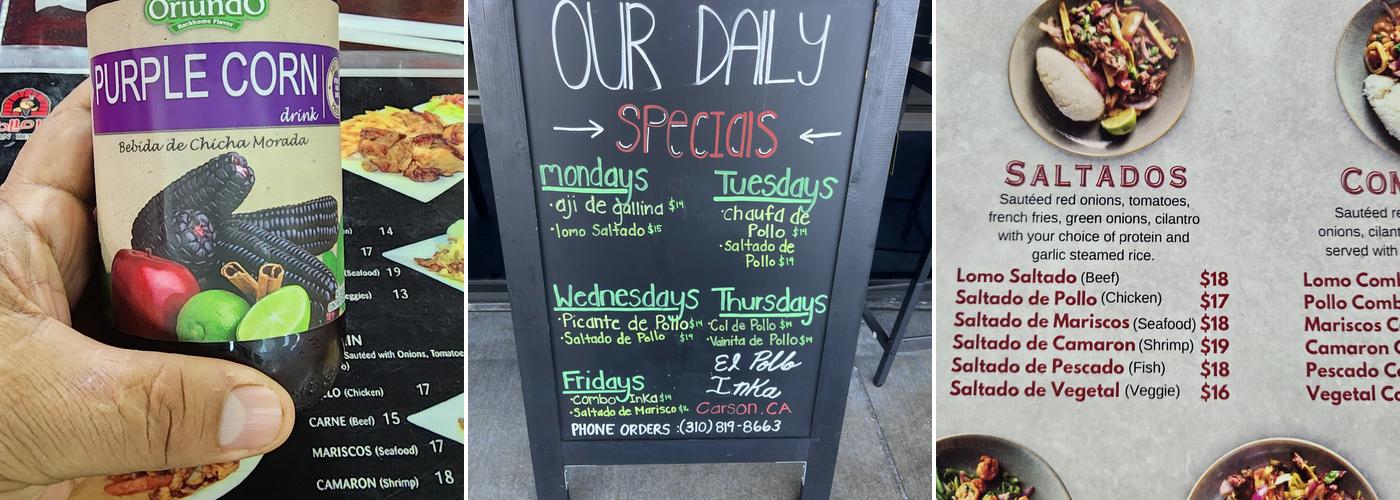 Oriundo
Backhome Flavor
PURPLE CORN
drink
Bebida de Chicha Morada
14
17
(Seafood) 19
13
Sautéed with Onions, Tomatoe
(Chicken) 17
CARNE (Beef) 15
MARISCOS (Seafood) 17
CAMARON (Shrimp) 18
OUR DAILY
SPECIAlS
mondays
·aji de gallina $14
·lomo Saltado $15
Tuesdays
·Chaufa de
Pollo $14
·Saltado de
Pollo $14
Wednesdays
·Picante de Pollo $14
·Saltado de Pollo $14
Thursdays
·Col de Pollo $14
·Vainita de Pollo $14
Fridays
·Combo Inka $14
·Saltado de Marisco
El Pollo
InKa
Carson.CA
PHONE ORDERS :(310) 819-8663
SALTADOS
Sautéed red onions, tomatoes,
french fries, green onions, cilantro
with your choice of protein and
garlic steamed rice.
Lomo Saltado (Beef) $18
Saltado de Pollo (Chicken) $17
Saltado de Mariscos (Seafood) $18
Saltado de Camaron (Shrimp) $19
Saltado de Pescado (Fish) $18
Saltado de Vegetal (Veggie) $16
Co
Sautéed re
onions, cilant
served with
Lomo Com
Pollo Com
Mariscos C
Camaron C
Pescado Co
Vegetal Co